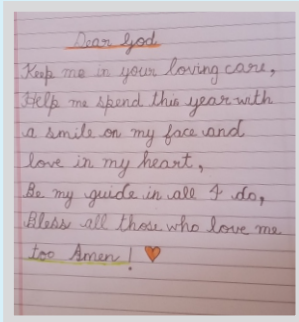 Dear God
Keep me in your loving care,
Help me spend this year with
a smile on my face and
love in my heart,
Be my guide in all I do,
Bless all those who love me
too Amen!